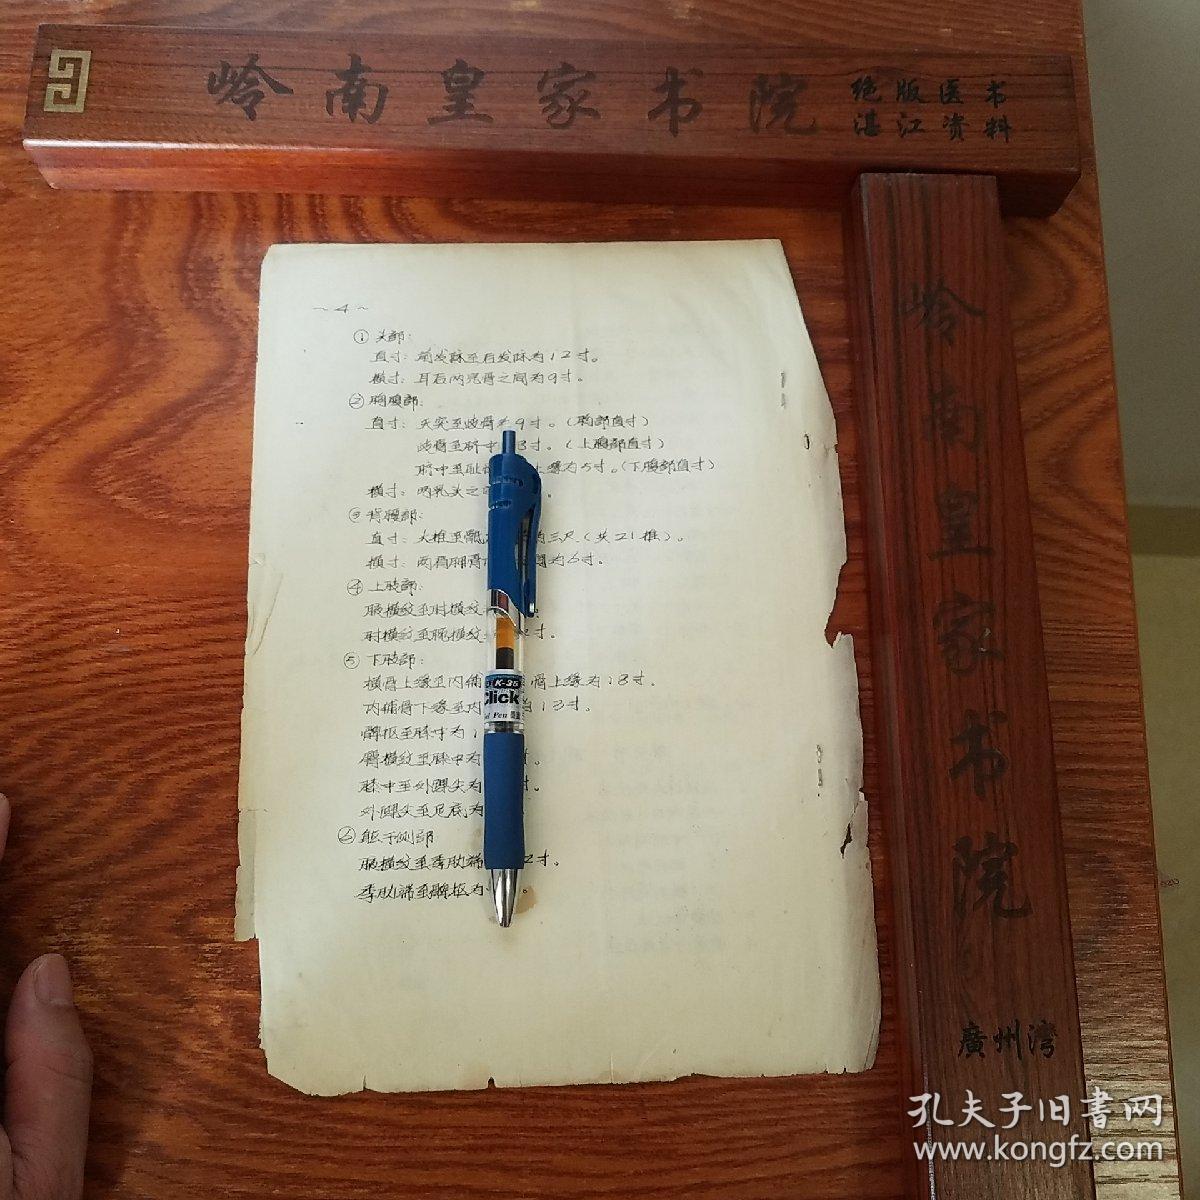 岭南皇家书院
绝版医书
湛江资料
岭南皇家书院
廣州湾
~4~
① 头部:
直寸: 前发际至后发际为12寸。
横寸: 耳后两完骨之间为9寸。
② 胸腹部:
直寸: 天突至歧骨为9寸。(胸部直寸)
歧骨至脐中 8寸。(上腹部直寸)
脐中至耻 上缘为5寸。(下腹部直寸)
横寸: 两乳头之 。
③ 背腰部:
直寸: 大椎至骶 为三尺(共21椎)。
横寸: 两肩胛骨 间为6寸。
④ 上肢部:
腋横纹至肘横纹
肘横纹至腕横纹 2寸.
⑤ 下肢部:
横骨上缘至内辅 骨上缘为18寸.
内辅骨下缘至内 13寸。
髀枢至膝中为1
臀横纹至膝中为 。
膝中至外踝尖为 寸。
外踝尖至足底为
⑥ 躯干侧部
腋横纹至季肋端 2寸。
季肋端至髀枢为 。
K-35
Click
Pen
孔夫子旧書网
www.kongfz.com